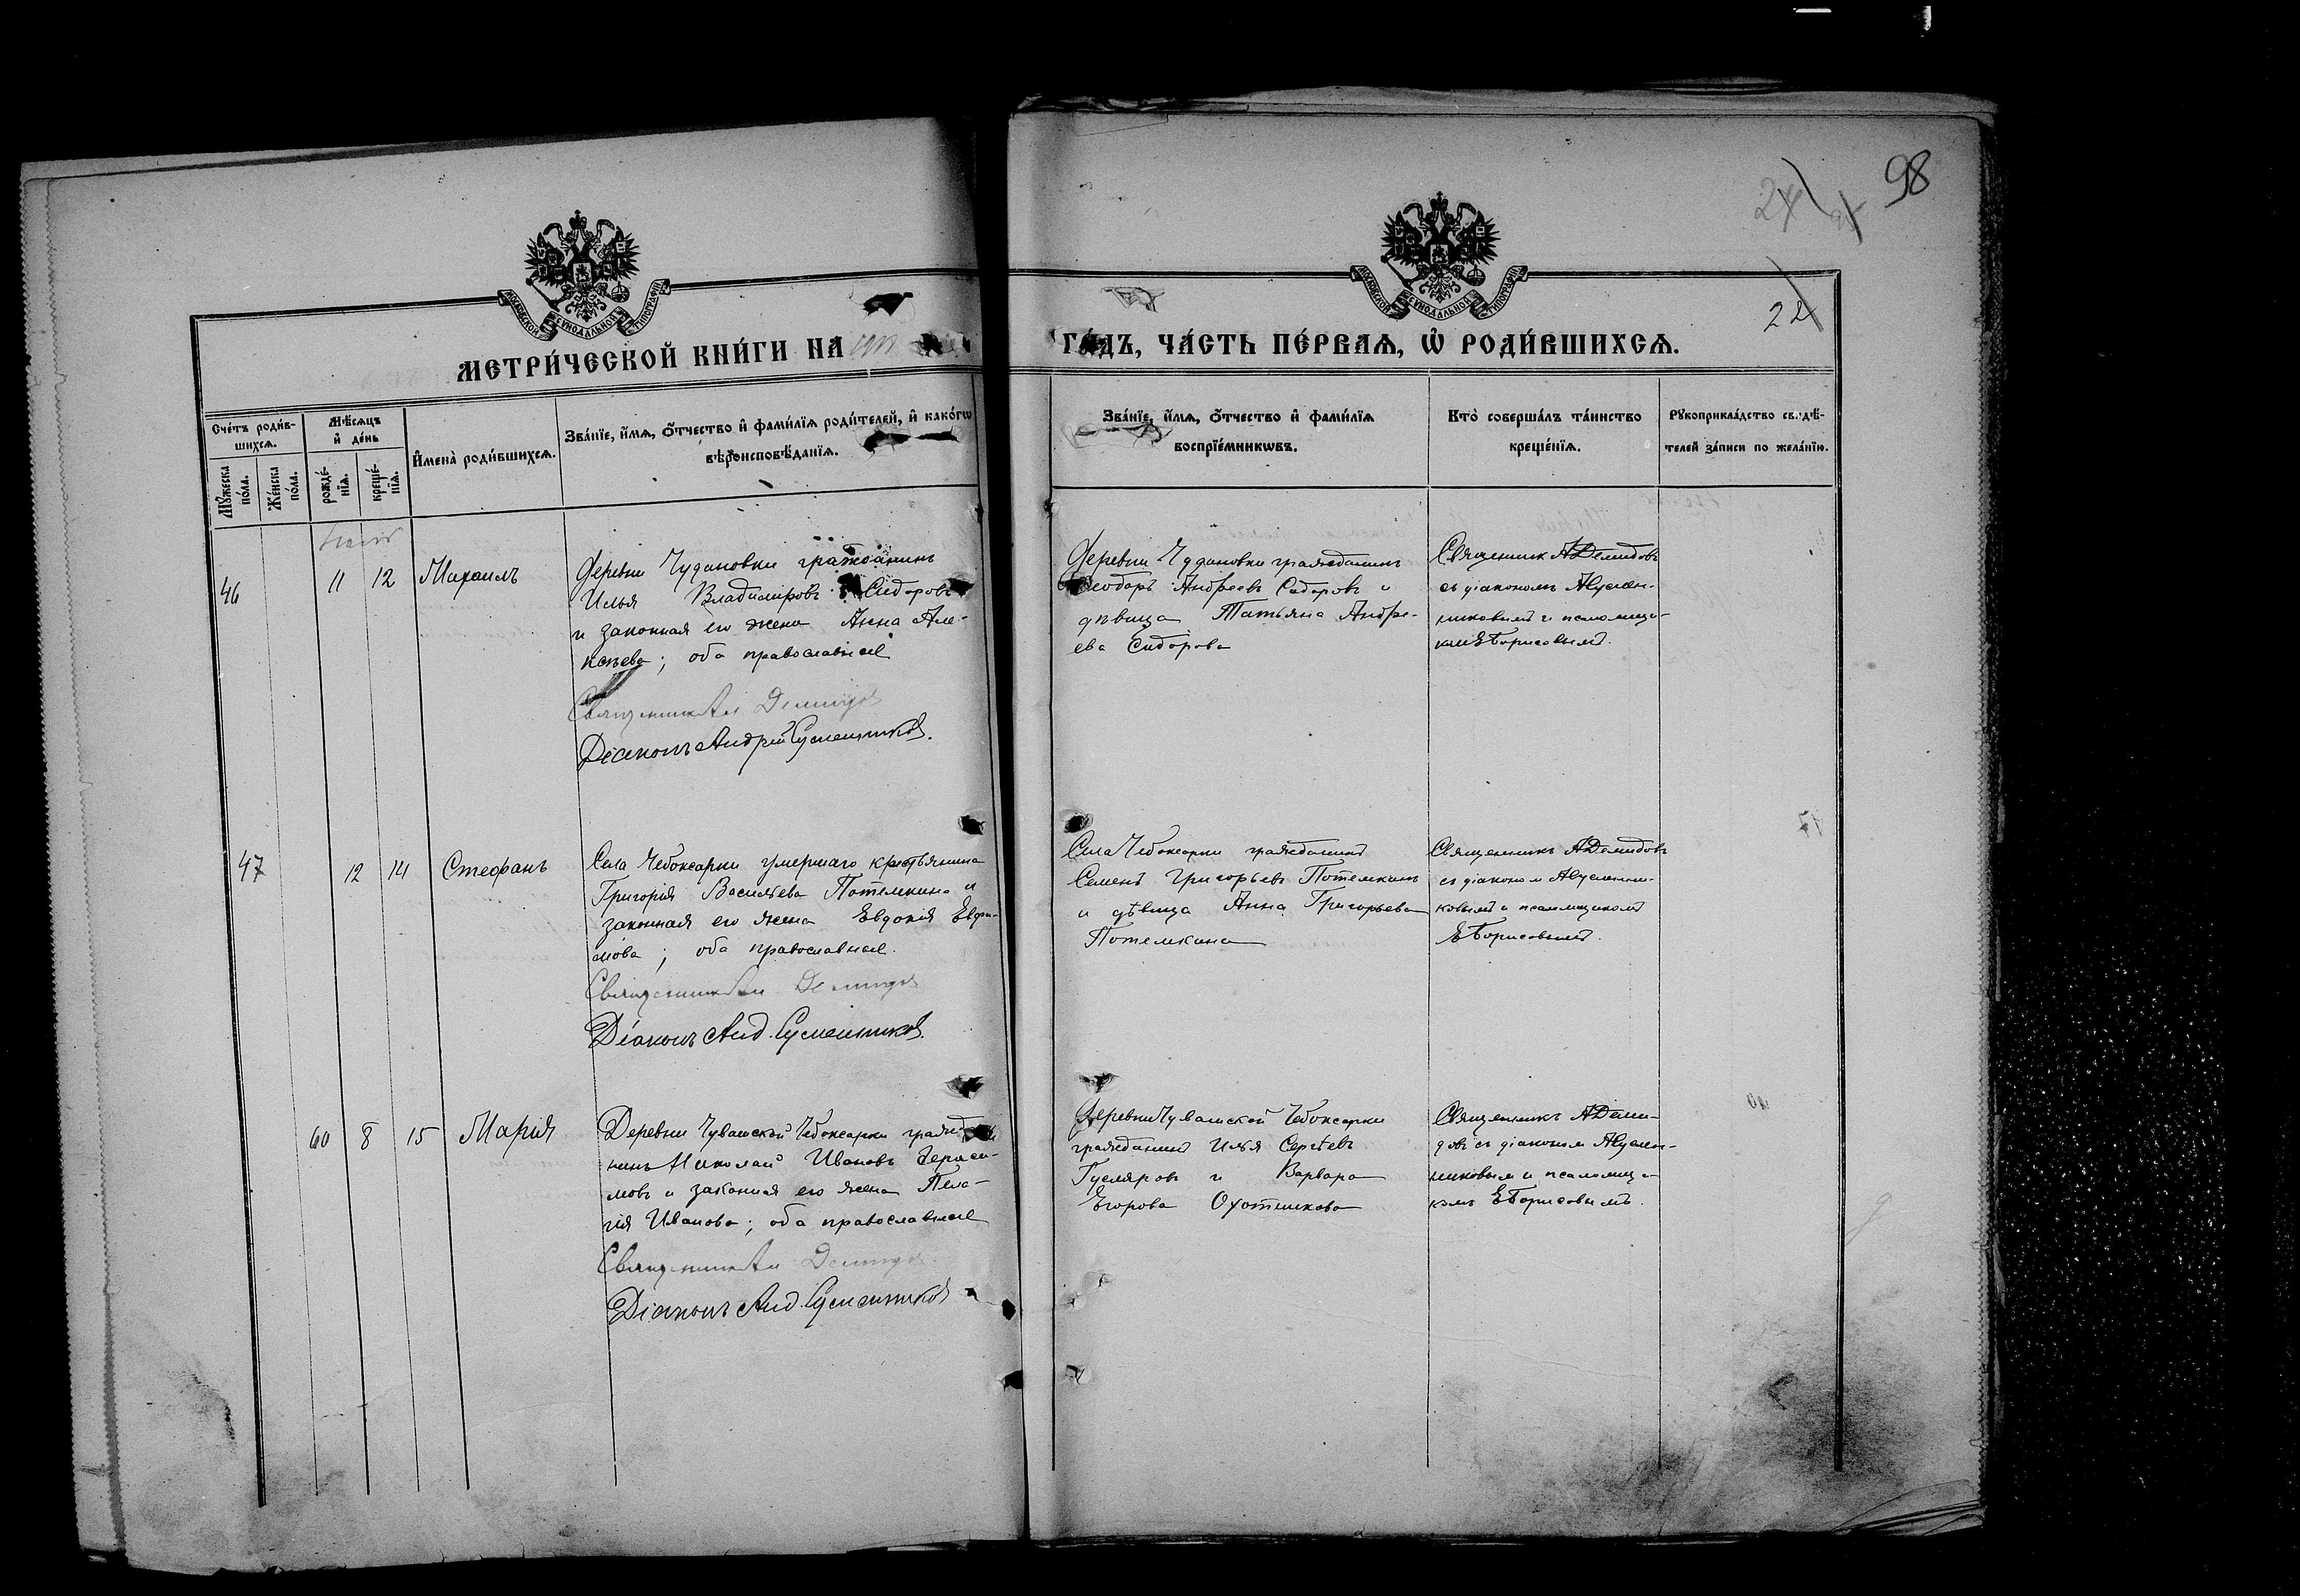 98
24
22
МОСКОВСКОЙ СѴНОДАЛЬНОЙ ТИПОГРАФІИ
МОСКОВСКОЙ СѴНОДАЛЬНОЙ ТИПОГРАФІИ
МЕТРИ́ЧЕСКОЙ КНИ́ГИ НА
ГО́ДЪ, ЧА́СТЬ ПЕ́РВАѦ, Ѡ҆ РОДИ́ВШИХСѦ.
Сче́тъ роди́в-
шихсѧ.
Мѣ́сѧцъ
и҆ де́нь
И҆мена̀ роди́вшихсѧ.
Зва́нїе, и҆́мѧ, ѻ҆́тчество и҆ фами́лїѧ роди́телей, и҆ како́гѡ
вѣроисповѣ́данїѧ.
Мꙋ́жеска
по́ла.
Же́нска
по́ла.
рожде́-
нїѧ.
креще́-
нїѧ.
Зва́нїе, и҆́мѧ, ѻ҆́тчество и҆ фами́лїѧ
воспрїе́мникѡвъ.
Кто̀ соверша́лъ та́инство
креще́нїѧ.
Рꙋкоприкла́дство свидѣ́-
телей за́писи по жела́нїю.
46
11
12
Михаилъ
Деревни Чудановки гражданинъ
Илья Владимировъ Сидоровъ
и законная его жена Анна Але-
ксѣева; оба православные
Священникъ Ал Демидов
Діаконъ Андрей Сусленников.
Деревни Чудановки гражданинъ
Ѳеодоръ Андреевъ Сидоровъ и
дѣвица Татьяна Андре-
ева Сидорова
Священникъ А Демидовъ
съ діакономъ А Суслен-
никовымъ и псаломщи-
комъ Е Борисовымъ.
47
12
14
Стефанъ
Села Чебоксарки умершаго крестьянина
Григорія Васильева Потемкина и
законная его жена Евдокія Евфи-
мова; оба православные.
Священникъ Ал Демидов
Діаконъ Анд. Сусленников.
Села Чебоксарки гражданинъ
Семенъ Григорьевъ Потемкинъ
и дѣвица Анна Григорьева
Потемкина
Священникъ А Демидовъ
съ діаконом А Сусленни-
ковымъ и псаломщикомъ
Е Борисовымъ.
60
8
15
Марія
Деревни Чувашской Чебоксарки гражда-
нинъ Николай Ивановъ Гераси-
мовъ и законная его жена Пела-
гія Иванова; оба православные
Священникъ Ал Демидов
Діаконъ Анд. Сусленников
Деревни Чувашской Чебоксарки
гражданинъ Илья Сергѣевъ
Гусляровъ и Варвара
Егорова Охотникова
Священникъ А Деми-
довъ съ діаконом А Суслен-
никовым и псаломщи-
комъ Е Борисовымъ.